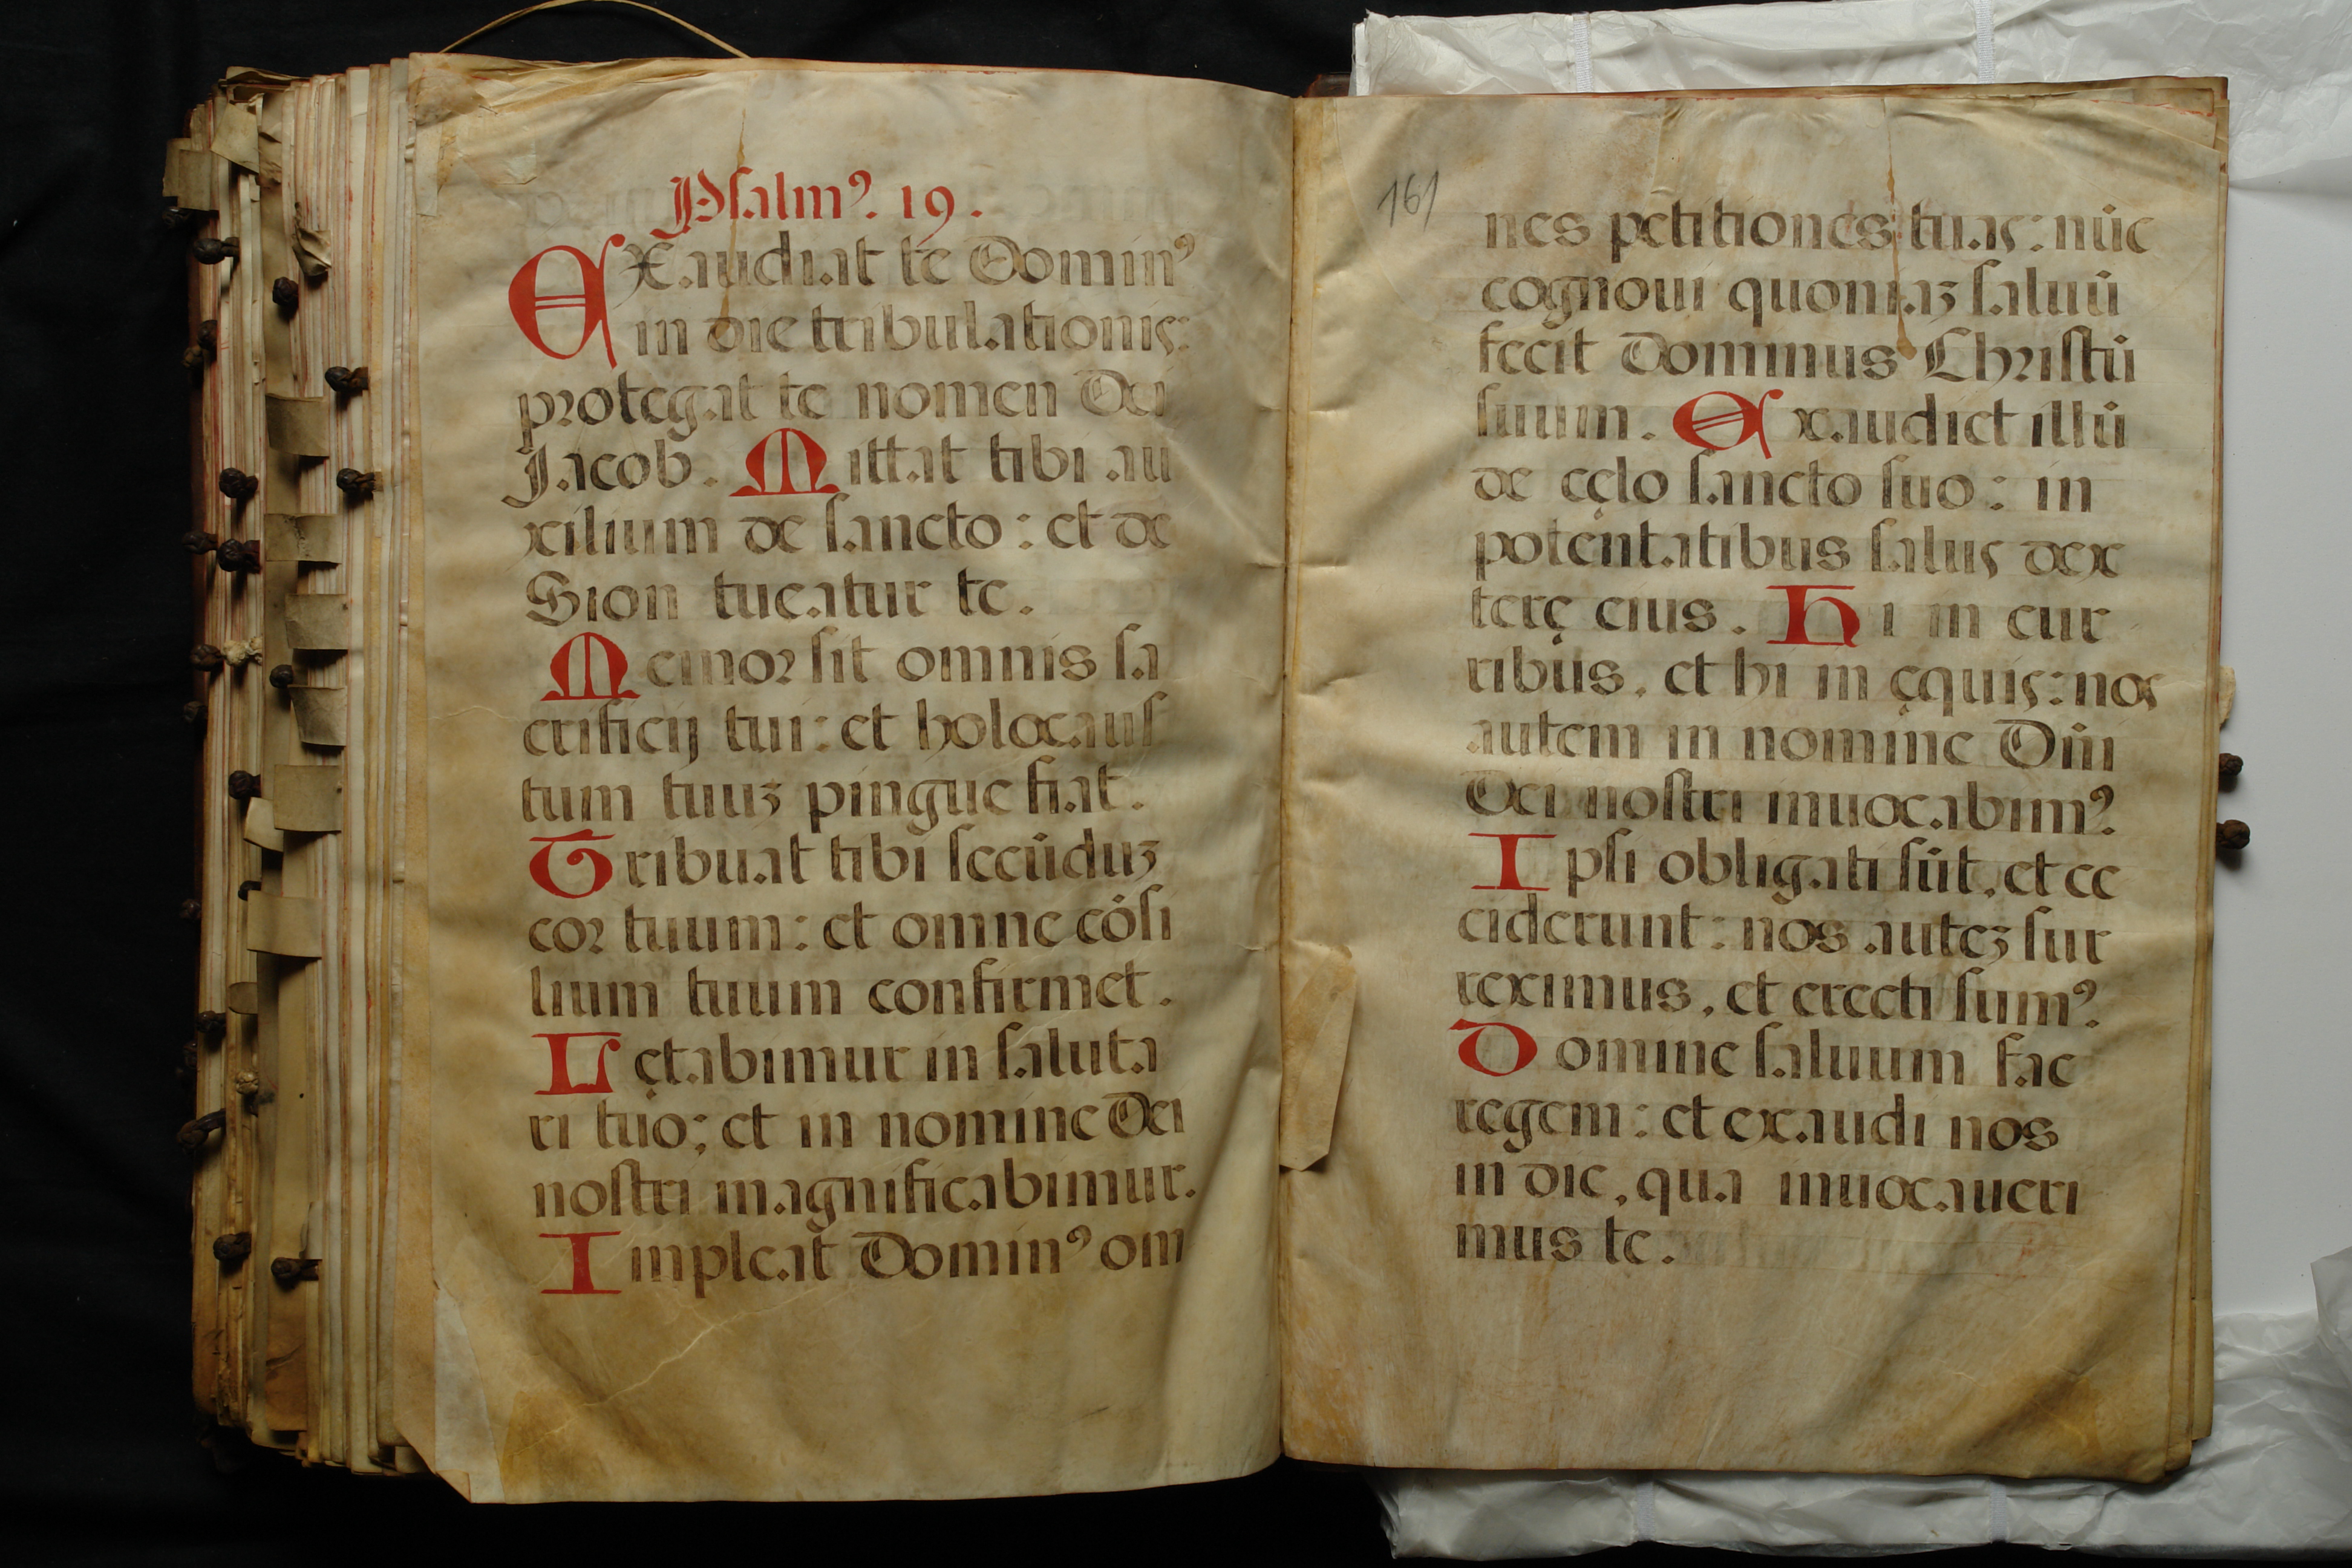 Psalmꝰ. 19.
EXaudiat te Dominꝰ
in die tribulationis:
protegat te nomen Dei
Jacob. Mittat tibi au
xilium de sancto: et de
Sion tueatur te.
Memor sit omnis sa
crificij tui: et holocaus
tum tuuz pingue fiat.
Tribuat tibi secūduz
cor tuum: et omne cōsi
lium tuum confirmet.
Lętabimur in saluta
ri tuo: et in nomine Dei
nostri magnificabimur.
Impleat Dominꝰ om
161
nes petitiones tuas: nūc
cognoui quoniaz saluū
fecit Dominus Christū
suum. Exaudiet illū
de cęlo sancto suo: in
potentatibus salus dex
terę eius. Hi in cur
ribus, et hi in ęquis: nos
autem in nomine Dn̄i
Dei nostri inuocabimꝰ.
Ipsi obligati sūt, et ce
ciderunt: nos autez sur
reximus, et erecti sumꝰ.
Domine saluum fac
regem: et exaudi nos
in die, qua inuocaueri
mus te.